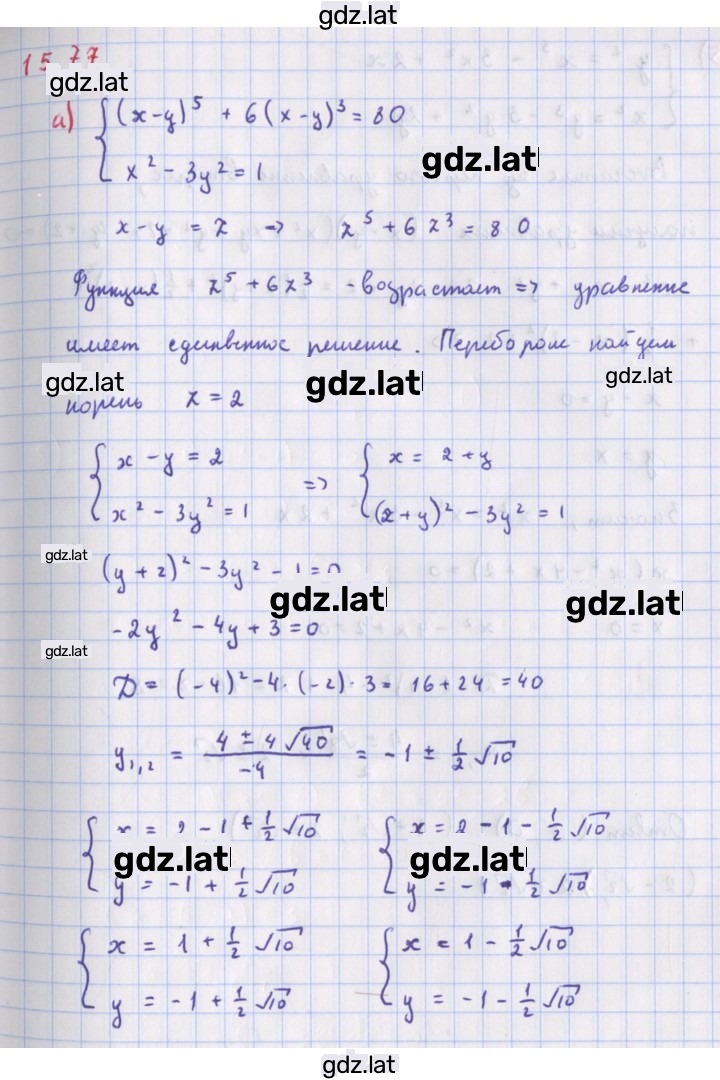 gdz.lat
15.77
gdz.lat
а) { (x-y)^5 + 6(x-y)^3 = 80
x^2 - 3y^2 = 1
gdz.lat
x-y = z => z^5 + 6z^3 = 80
Функция z^5 + 6z^3 - возрастает => уравнение
имеет единственное решение. Перебором найдем
gdz.lat gdz.lat gdz.lat
корень z = 2
{ x - y = 2 => { x = 2 + y
x^2 - 3y^2 = 1 (2+y)^2 - 3y^2 = 1
gdz.lat
(y+2)^2 - 3y^2 - 1 = 0
gdz.lat gdz.lat
-2y^2 - 4y + 3 = 0
gdz.lat
D = (-4)^2 - 4·(-2)·3 = 16 + 24 = 40
y1,2 = (4 ± 4√40)/(-4) = -1 ± 1/2 √10
{ x = 2 - 1 + 1/2 √10 { x = 2 - 1 - 1/2 √10
gdz.lat gdz.lat
y = -1 + 1/2 √10 y = -1 - 1/2 √10
{ x = 1 + 1/2 √10 { x = 1 - 1/2 √10
y = -1 + 1/2 √10 y = -1 - 1/2 √10
gdz.lat